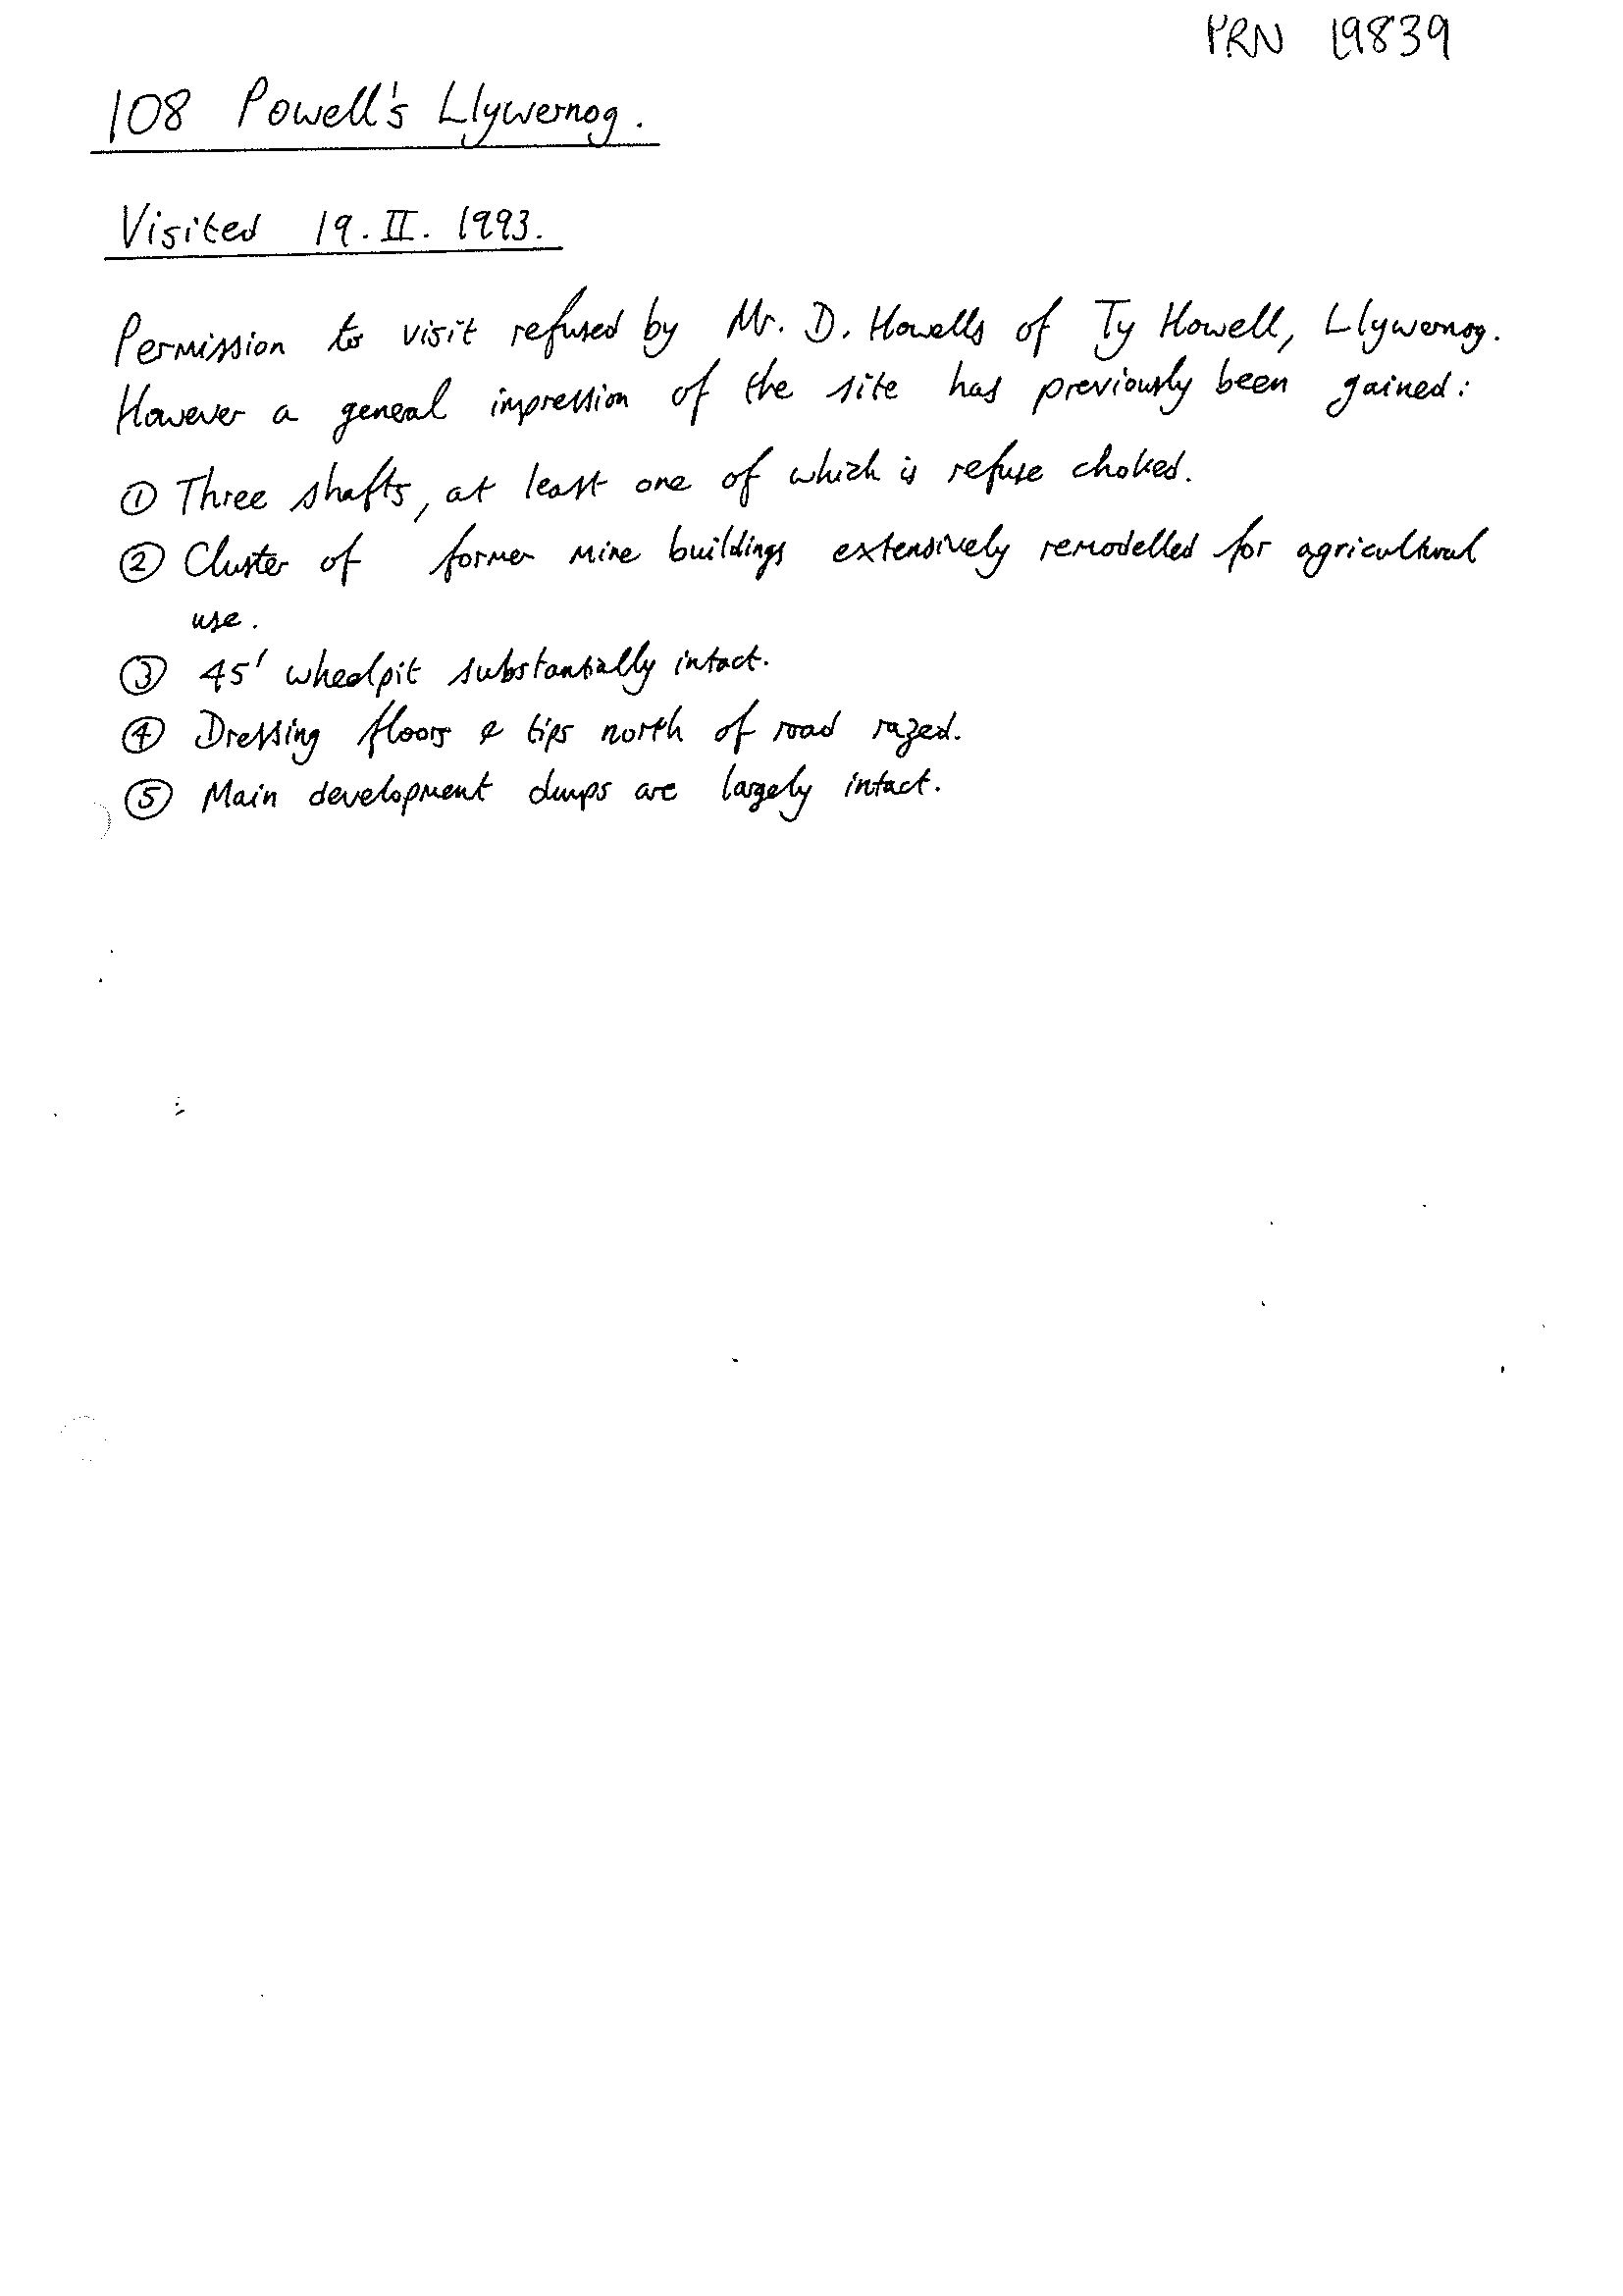 PRN 19839
108 Powell's Llywernog.
Visited 19.II.1993.
Permission to visit refused by Mr. D. Howells of Ty Howell, Llywernog.
However a general impression of the site has previously been gained:
① Three shafts, at least one of which is refuse choked.
② Cluster of former mine buildings extensively remodelled for agricultural
use.
③ 45' wheelpit substantially intact.
④ Dressing floors & tips north of road razed.
⑤ Main development dumps are largely intact.